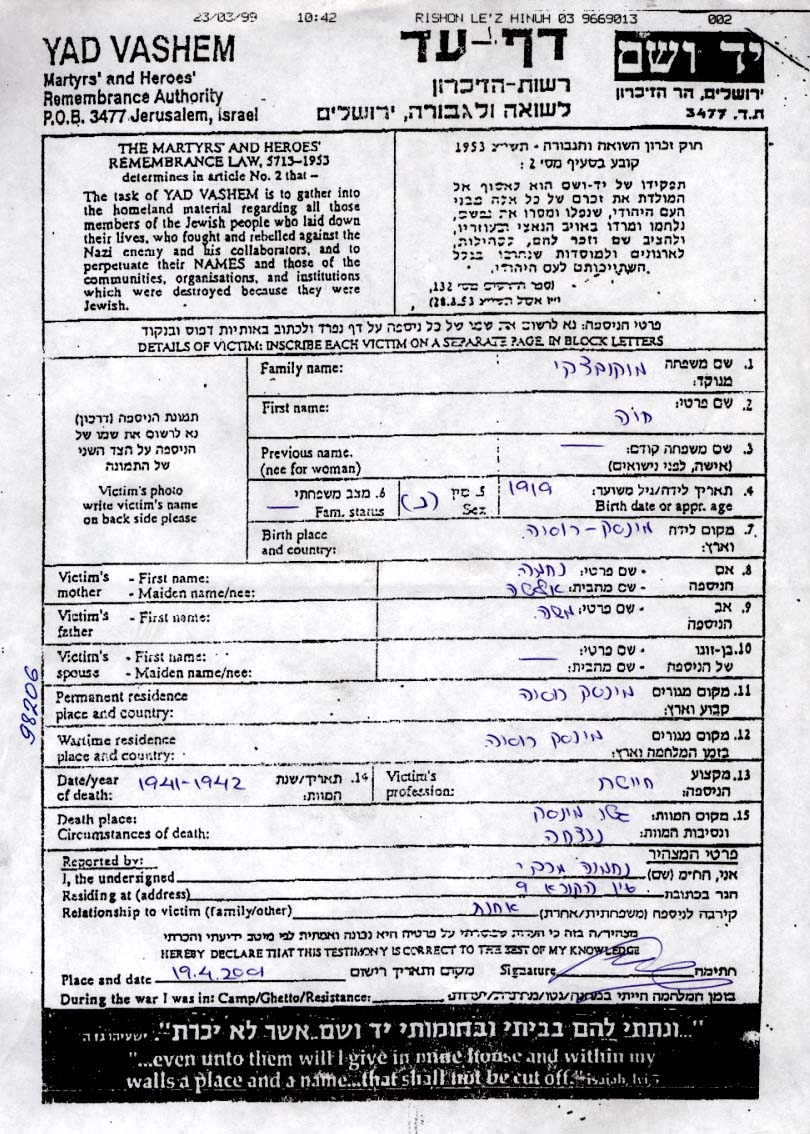 23/03/99 10:42 RISHON LE'Z HINUH 03 9669013 002
YAD VASHEM
Martyrs' and Heroes'
Remembrance Authority
P.O.B. 3477 Jerusalem, Israel
דף-עד
רשות-הזיכרון
לשואה ולגבורה, ירושלים
יד ושם
ירושלים, הר הזיכרון
ת.ד. 3477
THE MARTYRS' AND HEROES'
REMEMBRANCE LAW, 5713–1953
determines in article No. 2 that –
The task of YAD VASHEM is to gather into
the homeland material regarding all those
members of the Jewish people who laid down
their lives, who fought and rebelled against the
Nazi enemy and his collaborators, and to
perpetuate their NAMES and those of the
communities, organisations, and institutions
which were destroyed because they were
Jewish.
חוק זכרון השואה והגבורה - תשי"ג 1953
קובע בסעיף מס' 2:
תפקידו של יד-ושם הוא לאסוף אל
המולדת את זכרם של כל אלה מבני
העם היהודי, שנפלו ומסרו את נפשם,
נלחמו ומרדו באויב הנאצי ובעוזריו,
ולהציב שם וזכר להם, לקהילות,
לארגונים ולמוסדות שנחרבו בגלל
השתייכותם לעם היהודי.
(ספר החוקים מס' 132,
28.8.53)
פרטי הניספה: נא לרשום את שמו של כל ניספה על דף נפרד ולכתוב באותיות דפוס ובנקוד
DETAILS OF VICTIM: INSCRIBE EACH VICTIM ON A SEPARATE PAGE IN BLOCK LETTERS
תמונת הניספה (דרכון)
נא לרשום את שמו של
הניספה על הצד השני
של התמונה
Victim's photo
write victim's name
on back side please
Family name: 1. שם משפחה
מנוקד:
First name: חנה 2. שם פרטי:
Previous name. 3. שם משפחה קודם:
(nee for woman) (אישה, לפני נישואים)
6. מצב משפחתי 5. מין (נ) 1919 4. תאריך לידה/גיל משוער:
Fam. status Sex Birth date or appr. age
Birth place מינסק-רוסיה 7. מקום לידה
and country: וארץ:
Victim's - First name: נחמה - שם פרטי: 8. אם
mother - Maiden name/nee: - שם מהבית: הניספה
Victim's - First name: משה - שם פרטי: 9. אב
father הניספה
Victim's - First name: - שם פרטי: 10. בן-זוגו
spouse - Maiden name/nee: - שם מהבית: של הניספה
Permanent residence מינסק רוסיה 11. מקום מגורים
place and country: קבוע וארץ:
Wartime residence מינסק רוסיה 12. מקום מגורים
place and country: בזמן המלחמה וארץ:
Date/year 1941-1942 14. תאריך/שנת Victim's חייטת 13. מקצוע
of death: המוות: profession: הניספה:
Death place: גטו מינסק 15. מקום המוות:
Circumstances of death: נרצחה ונסיבות המוות:
Reported by: פרטי המצהיר
I, the undersigned נחמה אני, הח"מ (שם)
Residing at (address) 9 הגר בכתובת
Relationship to victim (family/other) אחות קירבה לניספה (משפחתית/אחרת)
מצהיר/ה בזה כי העדות שמסרתי על פרטיה היא נכונה ואמתית לפי מיטב ידיעתי והכרתי
HEREBY DECLARE THAT THIS TESTIMONY IS CORRECT TO THE BEST OF MY KNOWLEDGE
Place and date 19.4.2001 מקום ותאריך רישום Signature חתימה
During the war I was in: Camp/Ghetto/Resistance: בזמן המלחמה הייתי במחנה/גטו/מחתרת/יערות:
"...ונתתי להם בביתי ובחומותי יד ושם..אשר לא יכרת".
"...even unto them will I give in mine house and within my
walls a place and a name...that shall not be cut off."
98206